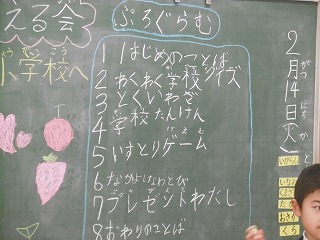 える会
小学校へ
ぷろぐらむ
1 はじめのことば
2 わくわく学校クイズ
3 とくいわざ
4 学校たんけん
5 いすとりゲーム
6 なかよしなわとび
7 プレゼントわたし
8 おわりのことば
2月14日(火)